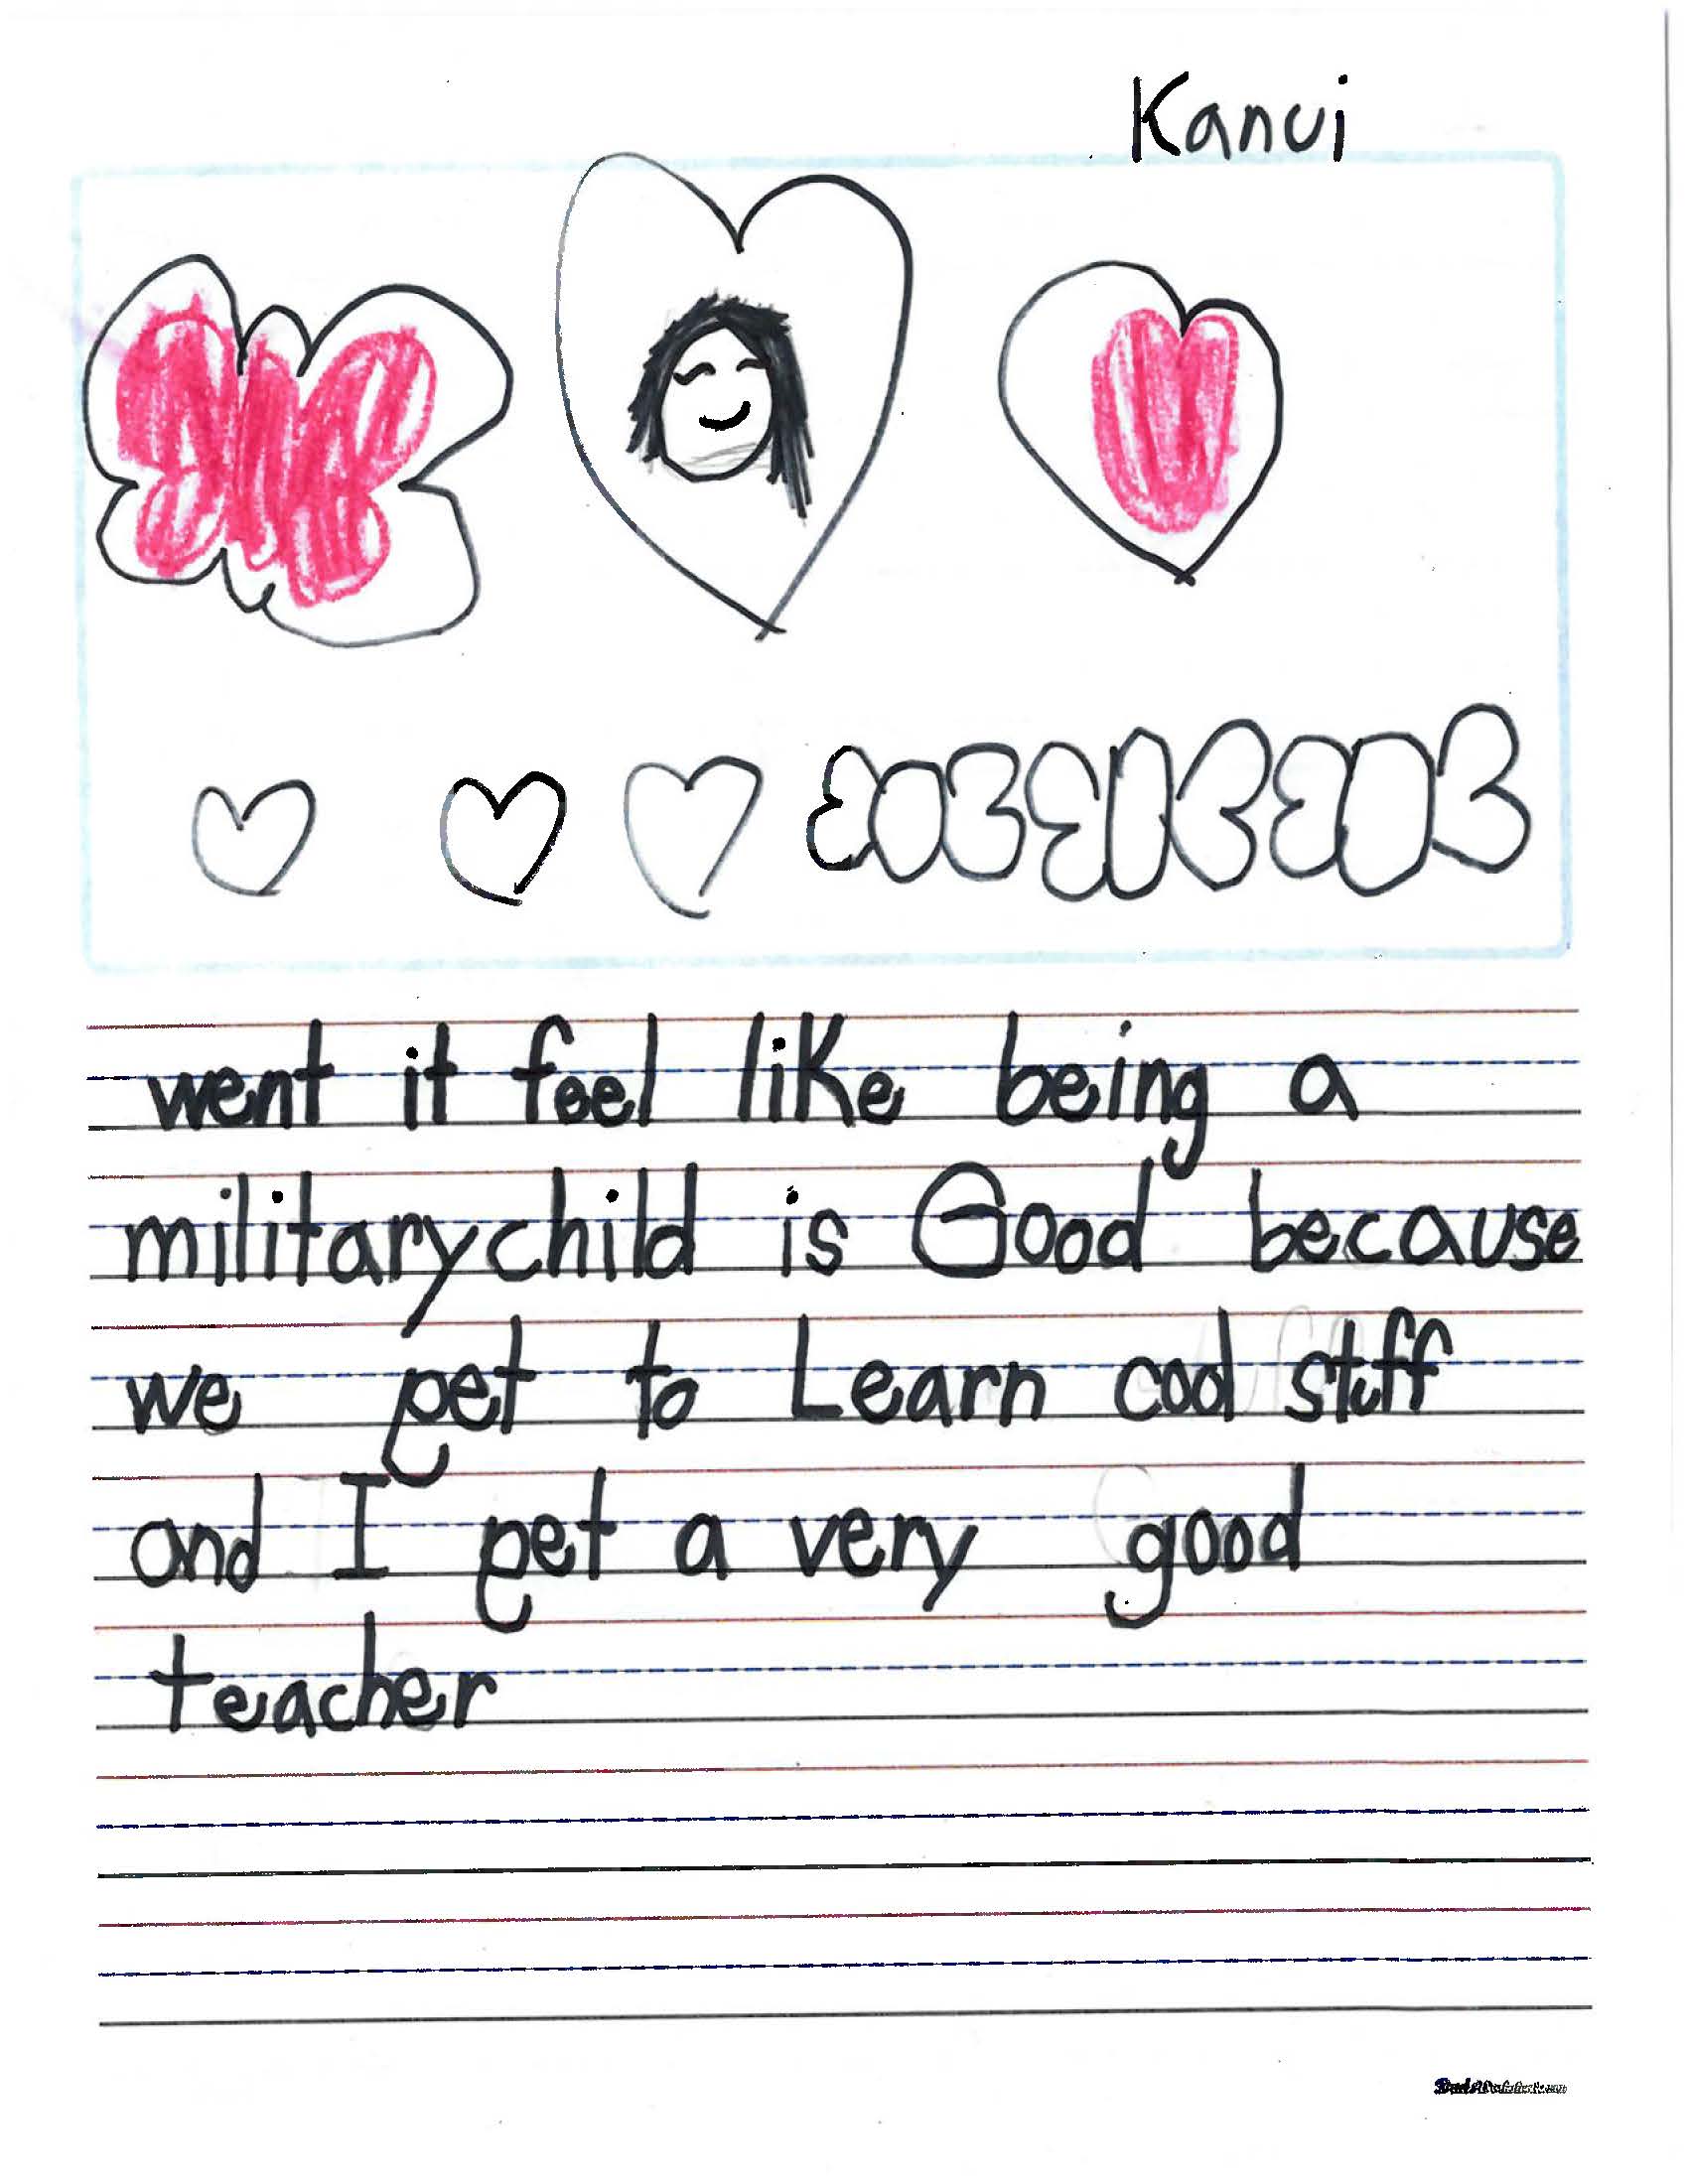 Kanui
went it feel like being a
militarychild is Good because
we get to Learn cool stuff
and I get a very good
teacher